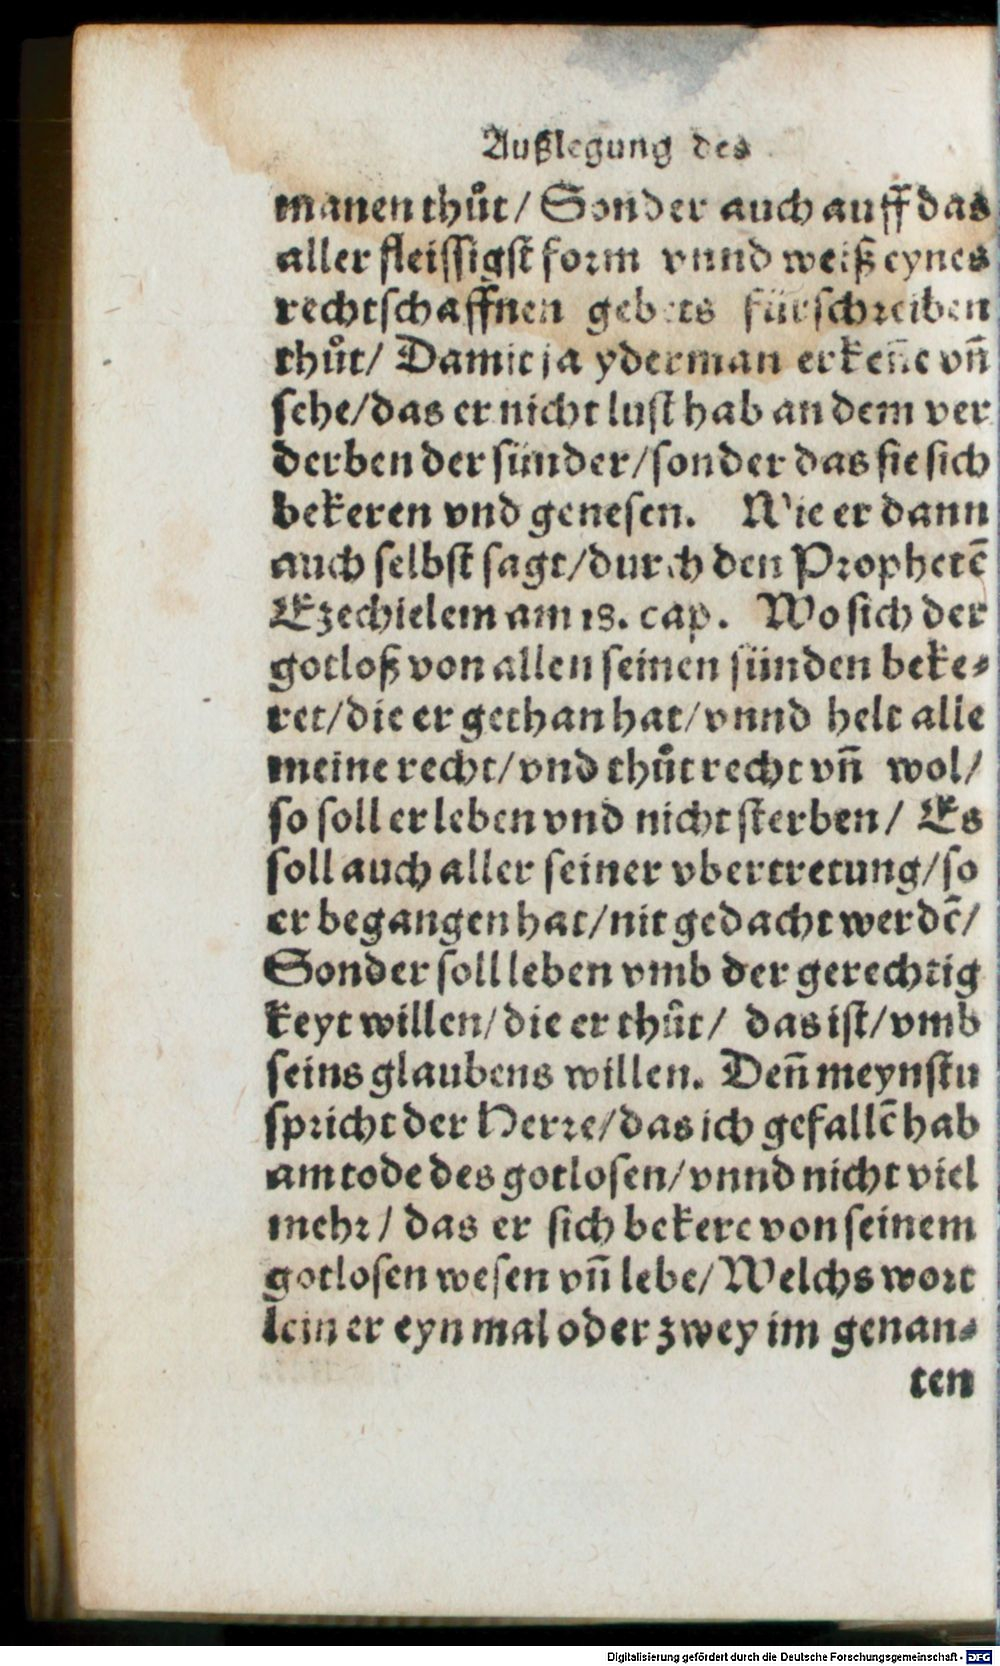 Außlegung des
manen thůt/ Sonder auch auff das
aller fleissigst form vnnd weiß eynes
rechtschaffnen gebets fürschreiben
thůt/ Damit ja yderman erkeñe vñ
sehe/das er nicht lust hab an dem ver
derben der sünder/sonder das sie sich
bekeren vnd genesen. Wie er dann
auch selbst sagt/durch den Prophetẽ
Ezechielem am 18. cap. Wo sich der
gotloß von allen seinen sünden beke-
ret/die er gethan hat/vnnd helt alle
meine recht/vnd thůt recht vñ wol/
so soll er leben vnd nicht sterben/ Es
soll auch aller seiner vbertretung/so
er begangen hat/nit gedacht werdẽ/
Sonder soll leben vmb der gerechtig
keyt willen/die er thůt/ das ist/vmb
seins glaubens willen. Deñ meynstu
spricht der Herre/das ich gefallẽ hab
am tode des gotlosen/vnnd nicht viel
mehr/ das er sich bekere von seinem
gotlosen wesen vñ lebe/Welchs wort
lein er eyn mal oder zwey im genan-
ten
Digitalisierung gefördert durch die Deutsche Forschungsgemeinschaft - DFG